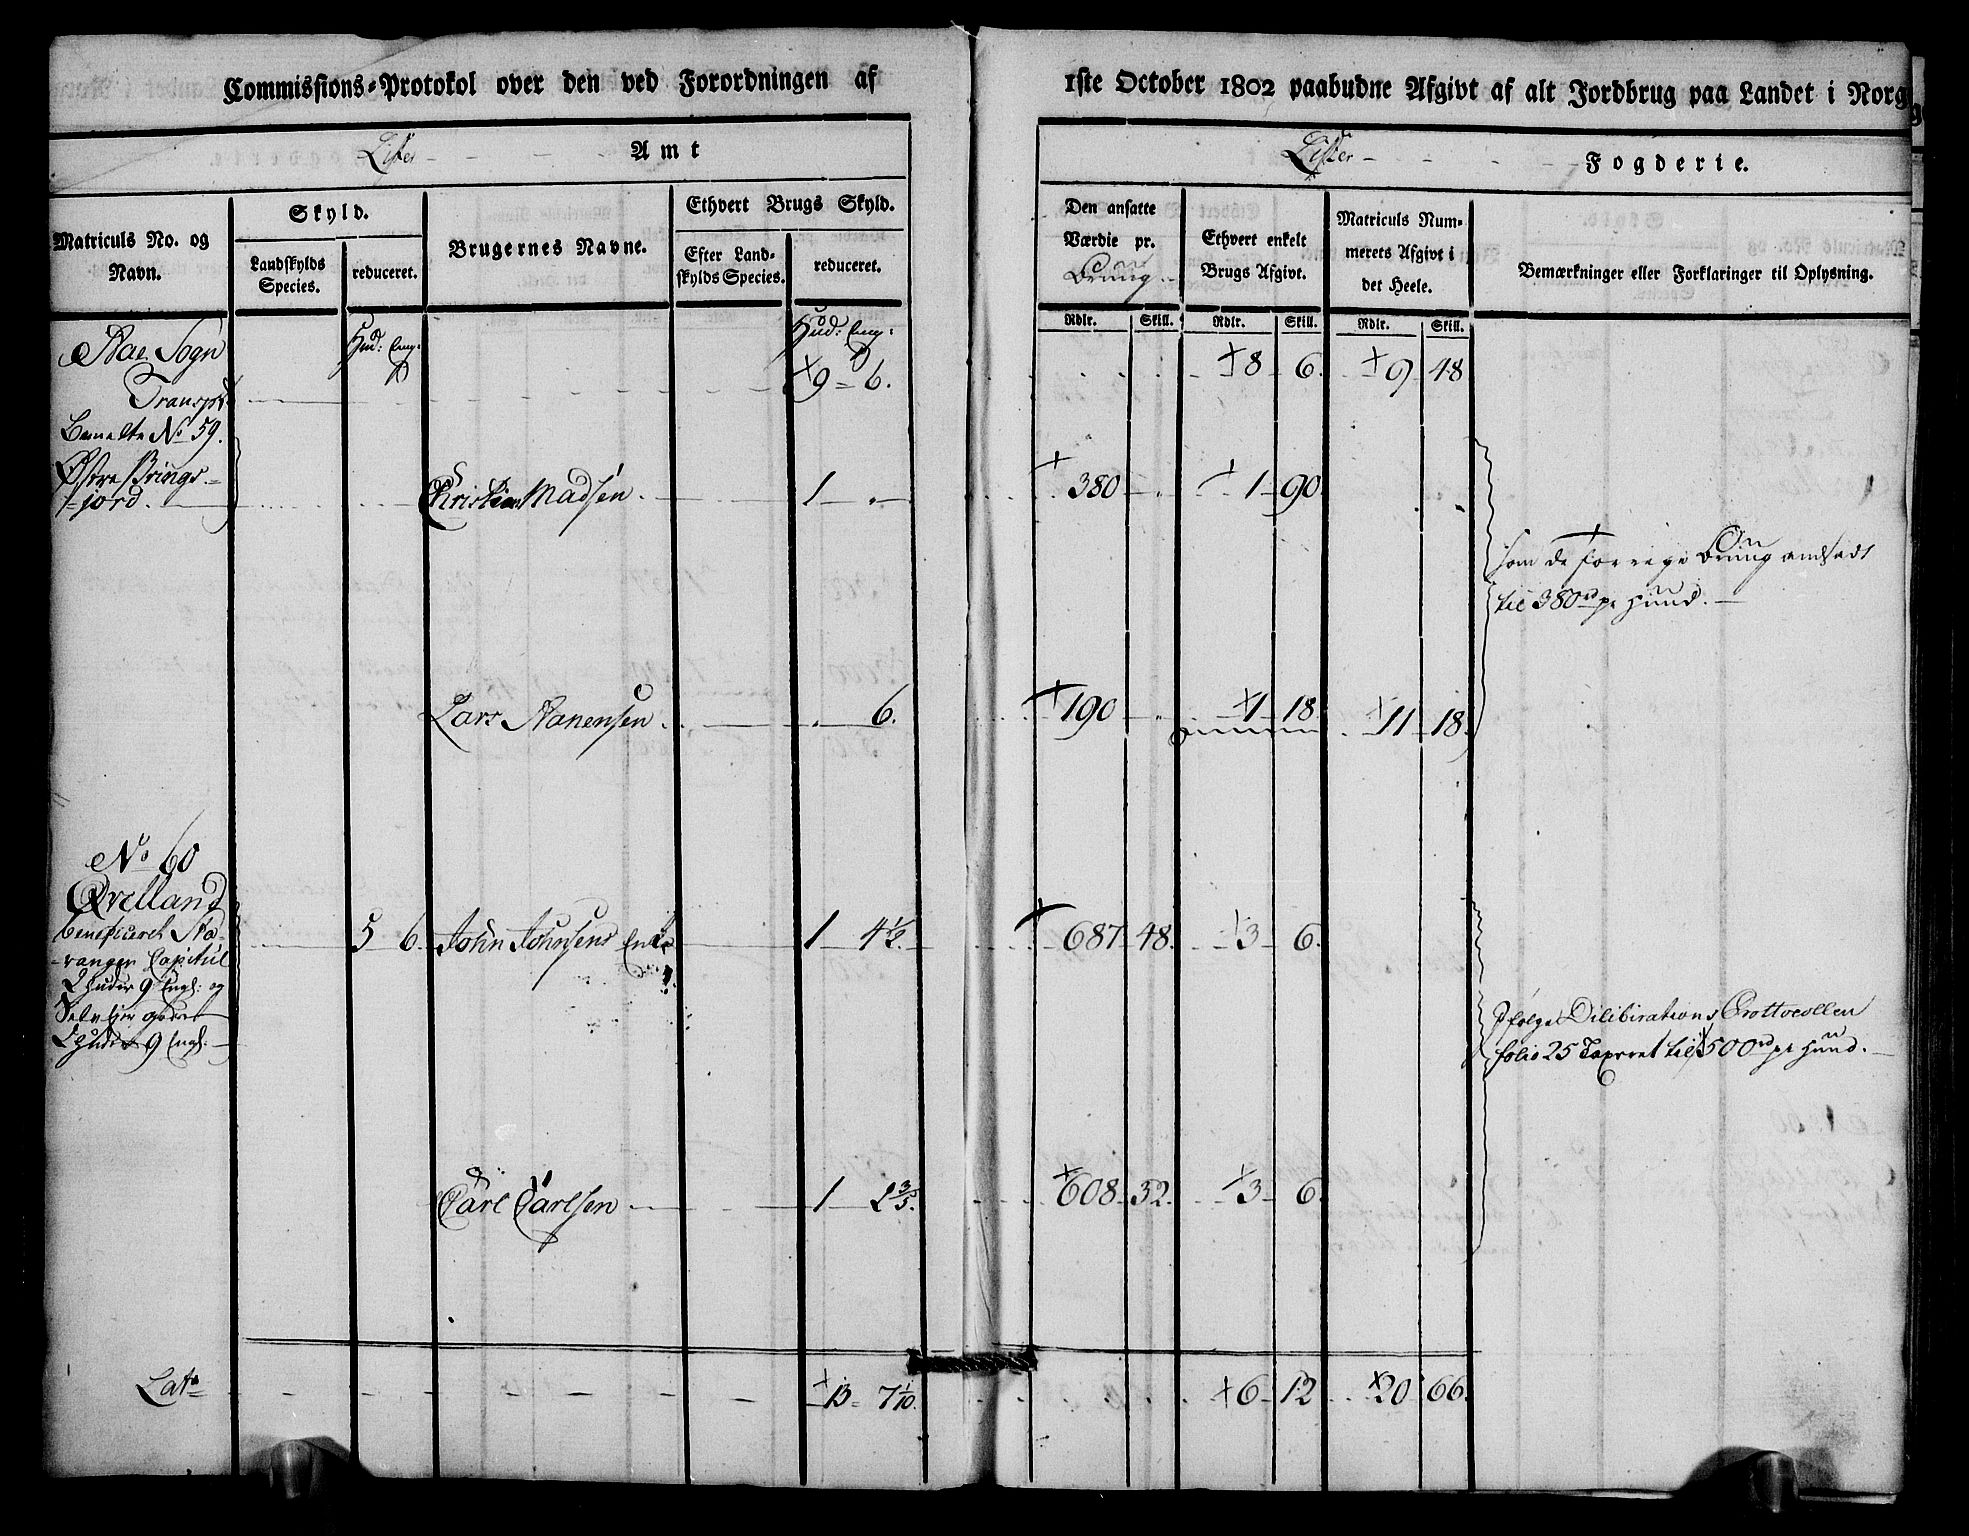 Commissions-Protokol over den ved Forordningen af 1ste October 1802 paabudne Afgivt af alt Jordbrug paa Landet i Norg
Lister Amt
Lister Fogderie.
Matriculs No. og Navn.
Skyld.
Landskylds Species.
reduceret.
Brugernes Navne.
Ethvert Brugs Skyld.
Efter Landskylds Species.
reduceret.
Den ansatte Værdie pr. Bruug.
Ethvert enkelt Brugs Afgivt.
Matriculs Nummerets Afgivt i det Heele.
Bemærkninger eller Forklaringer til Oplysning.
Rdlr. Skill. Rdlr. Skill. Rdlr. Skill.
Hud: Eng: Hud: Eng:
Aae Sogn
Transpt 9 6. 8 6. 9 48
No 59.
Østre Brings-
jord. Christian Madsen. 1 380 1 90
som de forrige Bruug andsadt
til 380 rd pr Huud.
Lars Aanensen 6. 190 1 18 11 18
No 60
Qvelland
beneficeret Sta- 5 6. John Johnsens Enke 1 4½. 687 48. 3 6.
vanger Capitul
2 Huder 9 Engl: og
Selveyer
2 Huder 9 Engl:
Ifølge Dilibirations Prottocollen
folio 25 Taxeret til 500 rd pr Huud.
Carl Carlsen 1 2 3/5. 608 32. 3 6.
Lats 13 7 1/10. 6 12 20 66.